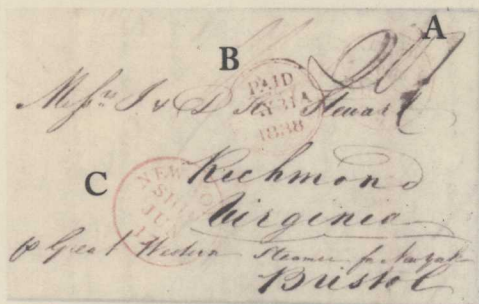 A
B
PAID
1838
Messrs J & D Stewart
C
NEW
SHIP
Richmond
Virginia
p Great Western Steamer for New York
Bristol